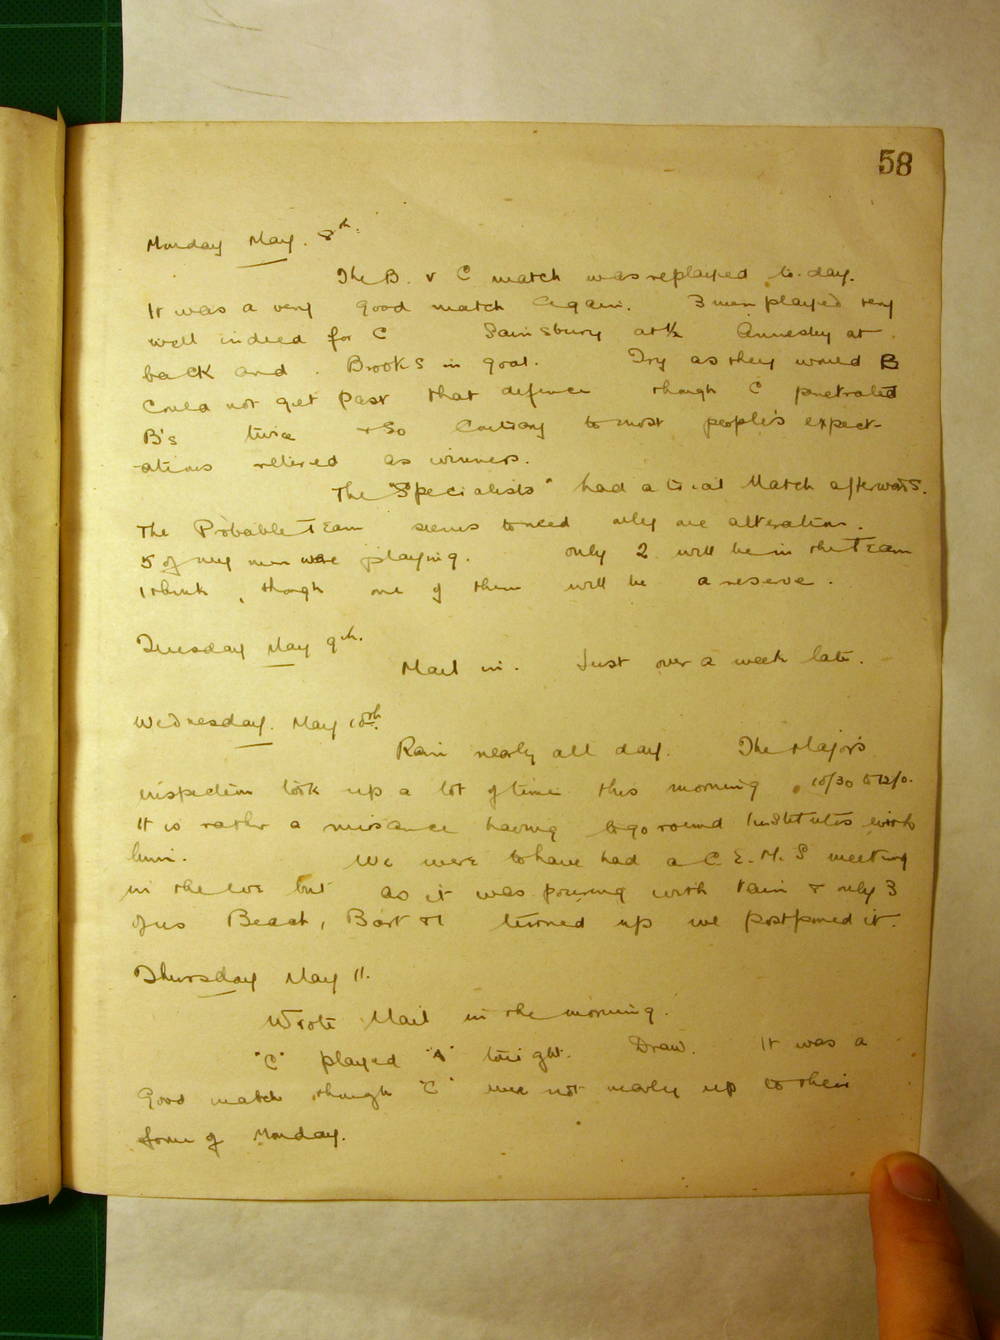 58
Monday May. 8th.
The B. v C match was replayed to-day.
It was a very good match again. 3 men played very
well indeed for C Sainsbury at ½ Annesley at
back and Brooks in goal. Try as they would B
could not get past that defence though C penetrated
B's twice + so contrary to most people's expect-
-ations retired as winners.
The "Specialists" had a trial Match afterwards.
The Probable Team seems to need only one alteration.
5 of my men were playing. only 2 will be in the Team
I think, though one of them will be a reserve.
Tuesday May 9th.
Mail in. Just over a week late.
Wednesday. May 10th.
Rain nearly all day. The Major's
inspection took up a lot of time this morning, 10/30 to 12/0.
It is rather a nuisance having to go round Institutes with
him. We were to have had a C.E.M.S meeting
in the eve but as it was pouring with rain + only 3
of us Beach, Bart + I turned up we postponed it.
Thursday May 11.
Wrote Mail in the morning.
"C" played "A" tonight. Draw. It was a
Good match though "C" were not nearly up to their
form of Monday.